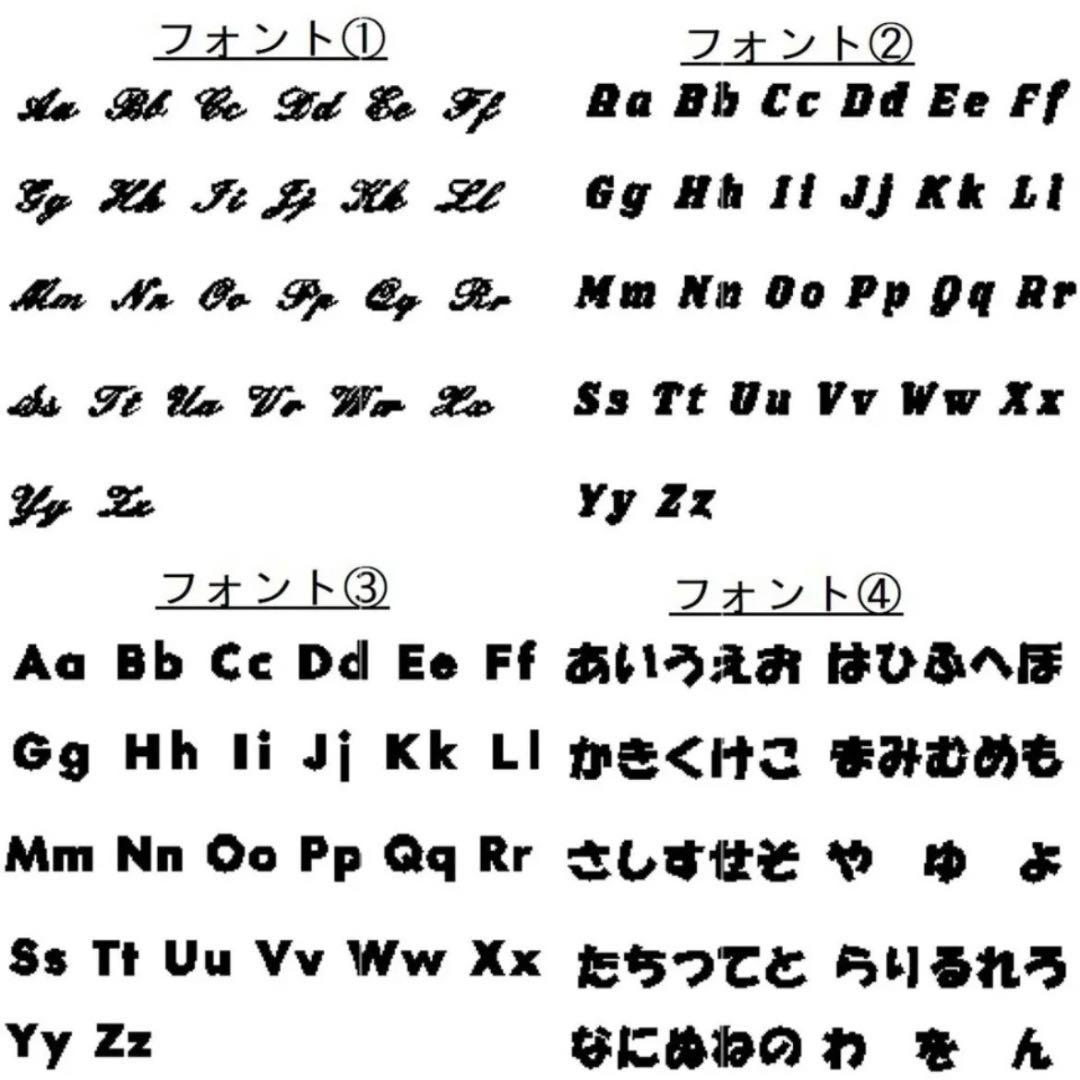 フォント①
Aa Bb Cc Dd Ee Ff
Gg Hh Ii Jj Kk Ll
Mm Nn Oo Pp Qq Rr
Ss Tt Uu Vv Ww Xx
Yy Zz
フォント②
Aa Bb Cc Dd Ee Ff
Gg Hh Ii Jj Kk Ll
Mm Nn Oo Pp Qq Rr
Ss Tt Uu Vv Ww Xx
Yy Zz
フォント③
Aa Bb Cc Dd Ee Ff
Gg Hh Ii Jj Kk Ll
Mm Nn Oo Pp Qq Rr
Ss Tt Uu Vv Ww Xx
Yy Zz
フォント④
あいうえお はひふへほ
かきくけこ まみむめも
さしすせそ や ゆ よ
たちつてと らりるれろ
なにぬねの わ を ん